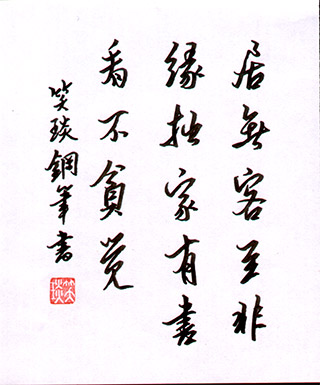 居無客至非
緣拙家有書
看不貧覺
笑琰鋼筆書
笑琰